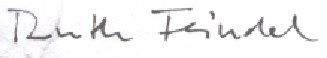 Ruth Feindel